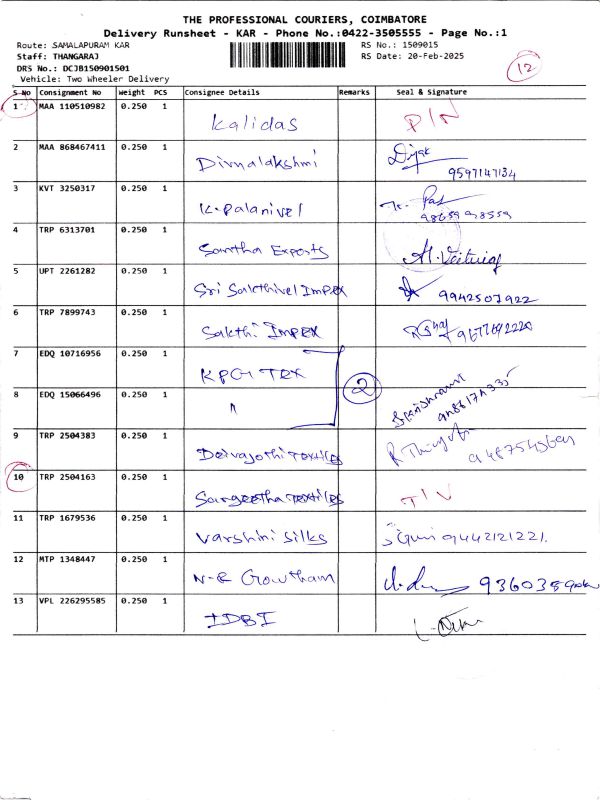 THE PROFESSIONAL COURIERS, COIMBATORE
Delivery Runsheet - KAR - Phone No.:0422-3505555 - Page No.:1
Route: SAMALAPURAM KAR RS No.: 1509015
Staff: THANGARAJ RS Date: 20-Feb-2025
DRS No.: DCJB150901501
Vehicle: Two Wheeler Delivery
12
S No Consignment No Weight PCS Consignee Details Remarks Seal & Signature
1 MAA 110510982 0.250 1 Kalidas P/N
2 MAA 868467411 0.250 1 Divnalakshmi
9597147134
3 KVT 3250317 0.250 1 K.Palanivel
4 TRP 6313701 0.250 1 Santha Exports
5 UPT 2261282 0.250 1 Sri Sakthivel Impex 9942507922
6 TRP 7899743 0.250 1 Sakthi Impex
7 EDQ 10716956 0.250 1 KPG TEX
2
8 EDQ 15066496 0.250 1 "
9 TRP 2504383 0.250 1 Deivajothi Textiles
10 TRP 2504163 0.250 1 Sangeetha Textiles
11 TRP 1679536 0.250 1 Varshini Silks 9442121221.
12 MTP 1348447 0.250 1 N-E Gowtham
13 VPL 226295585 0.250 1 IDBI